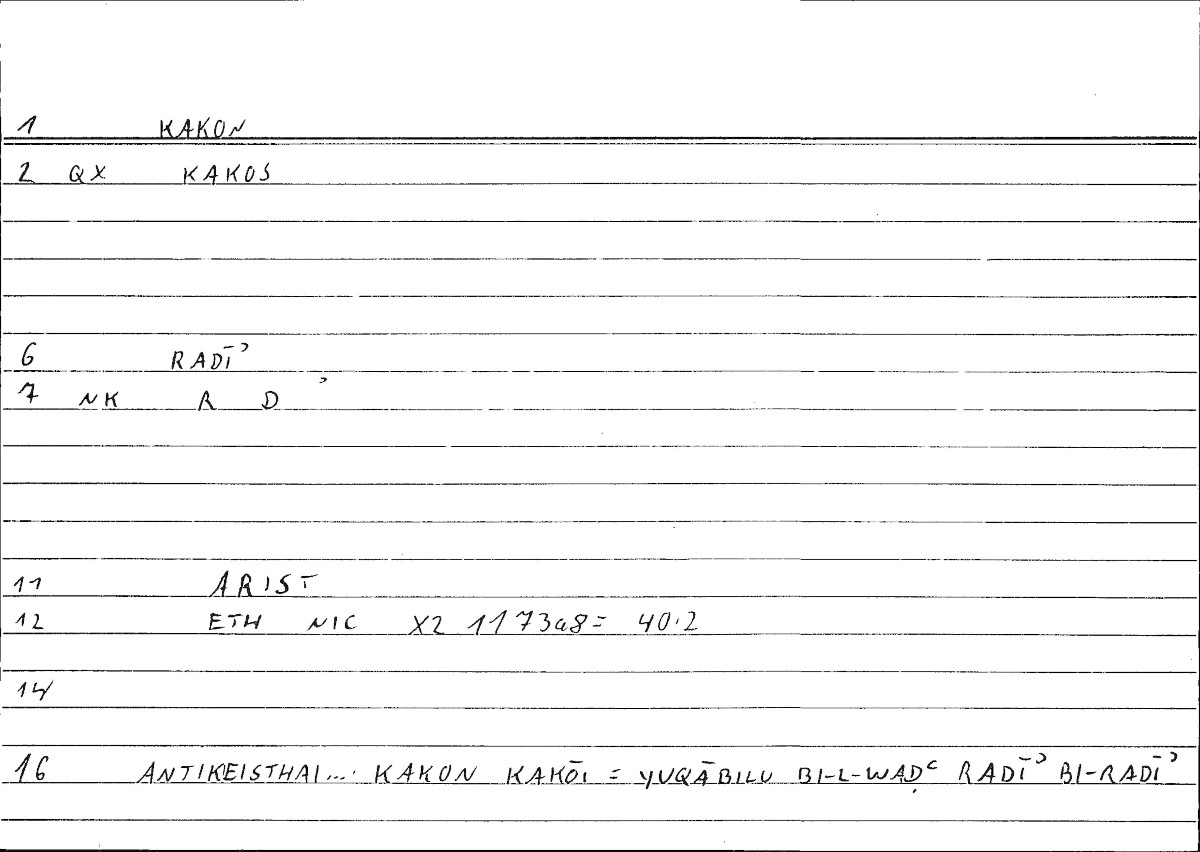 1 KAKON
2 QX KAKOS
6 RADĪʾ
7 NK R D ʾ
11 ARIST
12 ETH NIC X2 1173a8= 40.2
14
16 ANTIKEISTHAI... KAKON KAKŌI = YUQĀBILU BI-L-WAḌʿ RADĪʾ BI-RADĪʾ